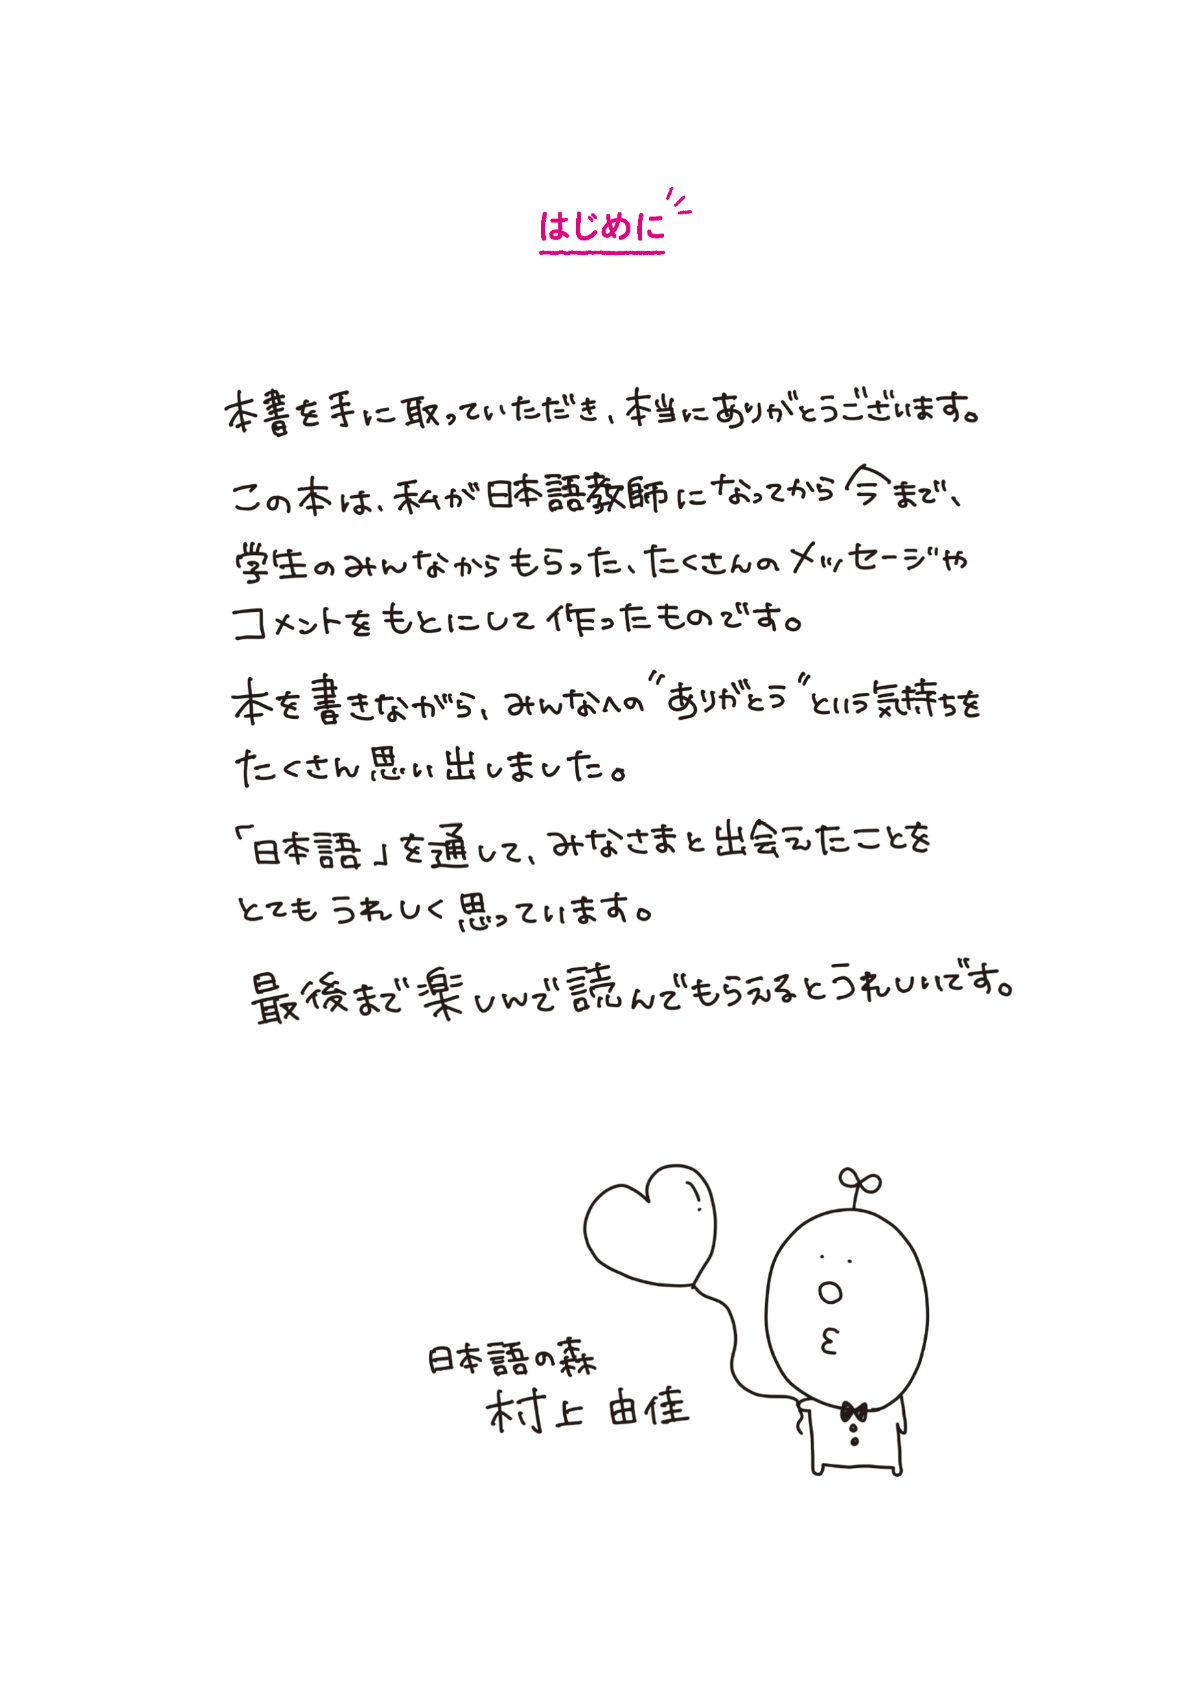 はじめに
本書を手に取っていただき、本当にありがとうございます。
この本は、私が日本語教師になってから今まで、
学生のみんなからもらった、たくさんのメッセージや
コメントをもとにして作ったものです。
本を書きながら、みんなへの"ありがとう"という気持ちを
たくさん思い出しました。
「日本語」を通して、みなさまと出会えたことを
とてもうれしく思っています。
最後まで楽しんで読んでもらえるとうれしいです。
日本語の森
村上 由佳